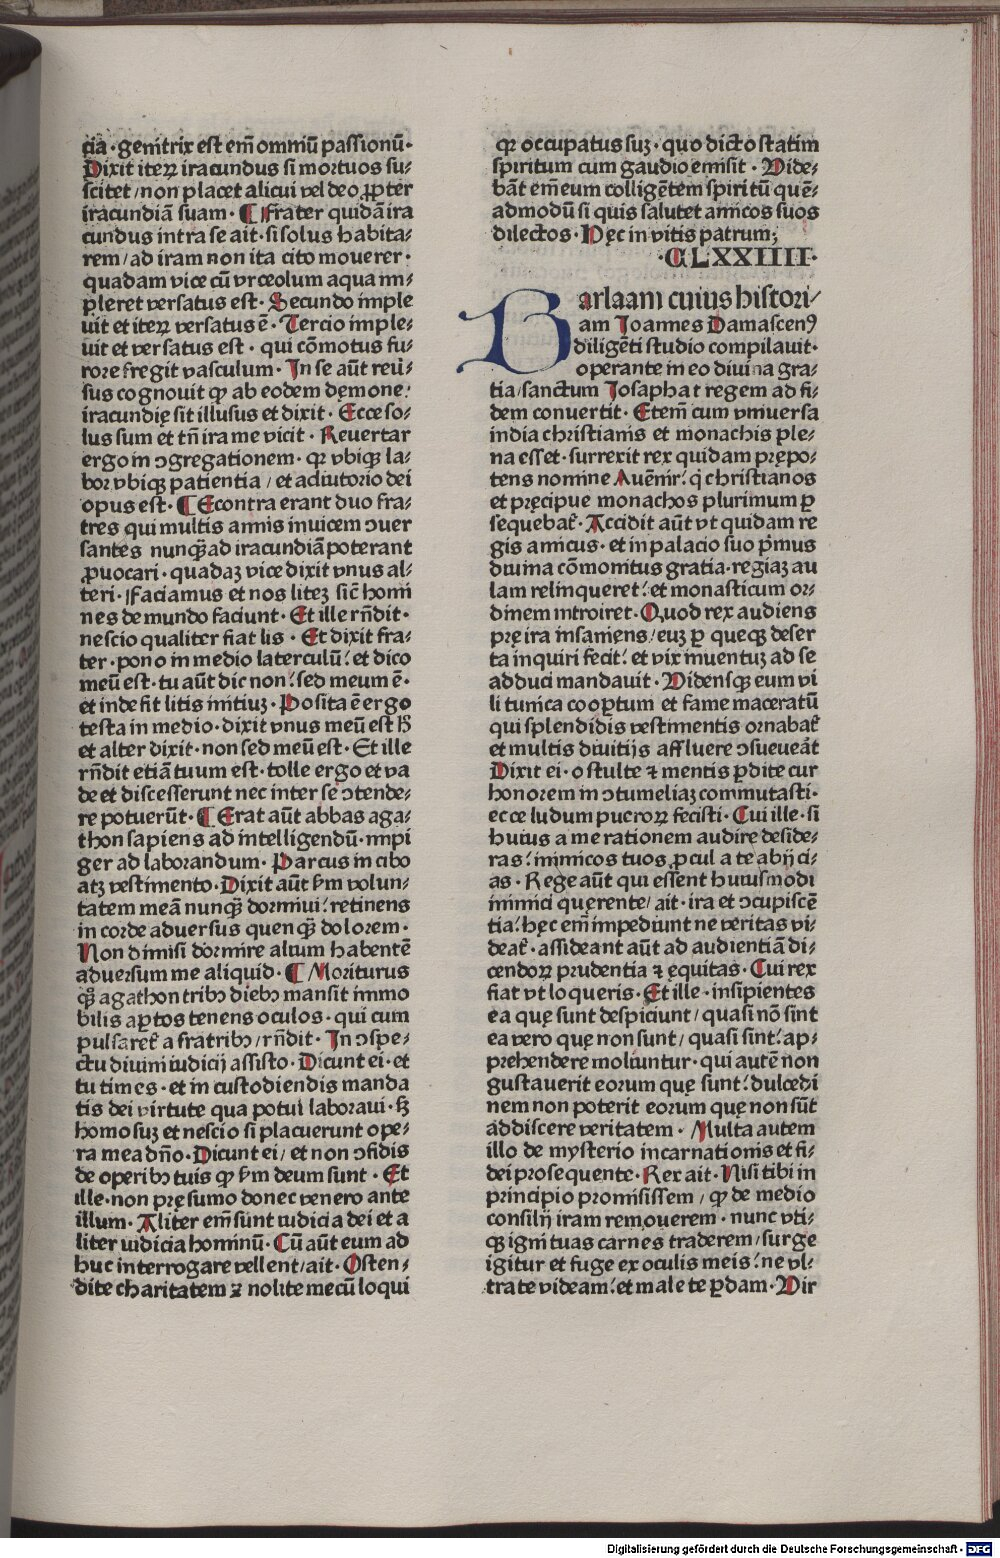 cia · genitrix est em̄ omniū passionū·
Dixit iteꝝ iracundus si mortuos su⸗
scitet / non placet alicui vel deo ꝓpter
iracundiā suam · ¶ Frater quidā ira
cundus intra se ait · si solus habita⸗
rem / ad iram non ita cito mouerer ·
quadam vice cū vrceolum aqua im⸗
pleret versatus est · Secundo imple
uit et iteꝝ versatus ē · Tercio imple⸗
uit et versatus est · qui cōmotus fu⸗
rore fregit vasculum · In se aūt reu̇⸗
sus cognouit ꝙ ab eodem dęmone:
iracundię sit illusus et dixit · Ecce so⸗
lus sum et tn̄ ira me vicit · Reuertar
ergo in ɔgregationem · qꝛ vbiqꝫ la⸗
bor vbiqꝫ patientia / et adiutorio dei
opus est · ¶ Econtra erant duo fra⸗
tres qui multis annis inuicem ɔuer
santes nunqꝫ̄ ad iracundiā poterant
ꝓuocari · quadaꝫ vice dixit vnus al⸗
teri · Faciamus et nos liteꝫ sic̄ homi
nes de mundo faciunt · Et ille rn̄dit ·
nescio qualiter fiat lis · Et dixit fra⸗
ter · pono in medio laterculū: et dico
meū est · tu aūt dic non: sed meum ē ·
et inde fit litis initiuꝫ · Posita ē ergo
testa in medio · dixit vnus meū est hͦ
et alter dixit · non sed meū est · Et ille
rn̄dit etiā tuum est · tolle ergo et va
de et discesserunt nec inter se ɔtende⸗
re potuerūt · ¶ Erat aūt abbas aga⸗
thon sapiens ad intelligendū · impi
ger ad laborandum · Parcus in cibo
atqꝫ vestimento · Dixit aūt ẜm volun⸗
tatem meā nunqꝫ̄ dormiui: retinens
in corde aduersus quenqꝫ̄ dolorem ·
Non dimisi dormire alium habentē
aduersum me aliquid · ¶ Moriturus
qꝫ̄ agathon tribꝰ diebꝰ mansit immo
bilis aꝑtos tenens oculos · qui cum
pulsaret̄ a fratribꝰ / rn̄dit · In ɔspe⸗
ctu diuini iudicij assisto · Dicunt ei · et
tu times · et in custodiendis manda
tis dei virtute qua potui laboraui · sꝫ
homo suꝫ et nescio si placuerunt ope⸗
ra mea dn̄o · Dicunt ei / et non ɔfidis
de operibꝰ tuis ꝙ ẜm deum sunt · Et
ille · non pręsumo donec venero ante
illum · Aliter em̄ sunt iudicia dei et a
liter iudicia hominū · Cū aūt eum ad
huc interrogare vellent / ait · Osten⸗
dite charitatem ⁊ nolite mecū loqui
qꝛ occupatus suꝫ · quo dicto statim
spiritum cum gaudio emisit · Vide⸗
bāt em̄ eum colligētem spiritū quē⸗
admodū si quis salutet amicos suos
dilectos · Hęc in vitis patrum;
·CLXXIIII·
Barlaam cuius histori⸗
am Joannes Damascenꝰ
diligēti studio compilauit ·
operante in eo diuina gra⸗
tia / sanctum Josaphat regem ad fi⸗
dem conuertit · Etem̄ cum vniuersa
india christianis et monachis ple⸗
na esset · surrexit rex quidam prępo⸗
tens nomine Auēnir: q̇ christianos
et pręcipue monachos plurimum ꝑ
sequebat̄ · Accidit aūt vt quidam re
gis amicus · et in palacio suo p̄mus
diuina cōmonitus gratia · regiaꝫ au
lam relinqueret: et monasticum or⸗
dinem introiret · Quod rex audiens
prę ira insaniens / euꝫ ꝑ queqꝫ deser
ta inquiri fecit: et vix inuentuꝫ ad se
adduci mandauit · Vidensqꝫ eum vi
li tunica cooꝑtum et fame maceratū
qui splendidis vestimentis ornabat̄
et multis diuitijs affluere ɔsueueāt
Dixit ei · o stulte ⁊ mentis ꝑdite cur
honorem in ɔtumeliaꝫ commutasti ·
ecce ludum pueroꝝ fecisti · Cui ille · si
huius a me rationem audire deside⸗
ras: inimicos tuos ꝓcul a te abijci⸗
as · Rege aūt qui essent huiusmodi
inimici querente / ait · ira et ɔcupiscē
tia: hęc em̄ impediunt ne veritas vi⸗
deat̄ · assideant aūt ad audientiā di⸗
cendoꝝ prudentia ⁊ ęquitas · Cui rex
fiat vt loqueris · Et ille · insipientes
ea quę sunt despiciunt / quasi nō sint
ea vero quę non sunt / quasi sint: ap⸗
prehendere moliuntur · qui autē non
gustauerit eorum quę sunt: dulcedi
nem non poterit eorum quę non sūt
addiscere veritatem · Multa autem
illo de mysterio incarnationis et fi⸗
dei prosequente · Rex ait · Nisi tibi in
principio promisissem / ꝙ de medio
consilij iram remouerem · nunc vti⸗
qꝫ igni tuas carnes traderem / surge
igitur et fuge ex oculis meis: ne vl⸗
tra te videam: et male te ꝑdam · Vir
Digitalisierung gefördert durch die Deutsche Forschungsgemeinschaft · DFG